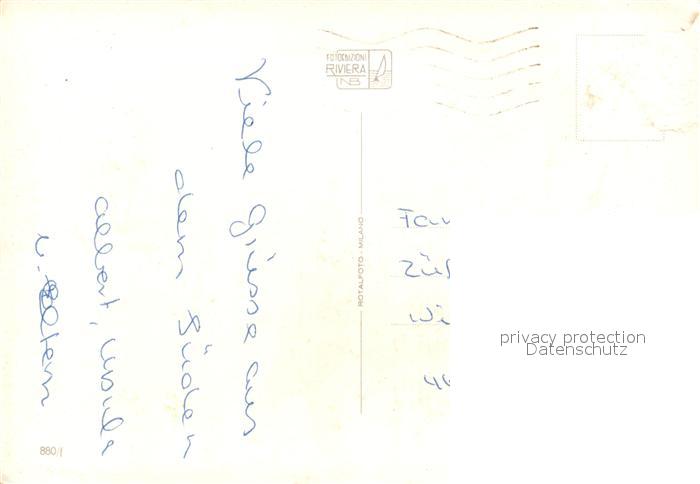 FOTOEDIZIONI
RIVIERA
NB
Viele Grüsse aus
dem Süden
Albert, Ursula
u. Eltern
ROTALFOTO - MILANO
Fam
Zür
Wi
privacy protection
Datenschutz
880/I